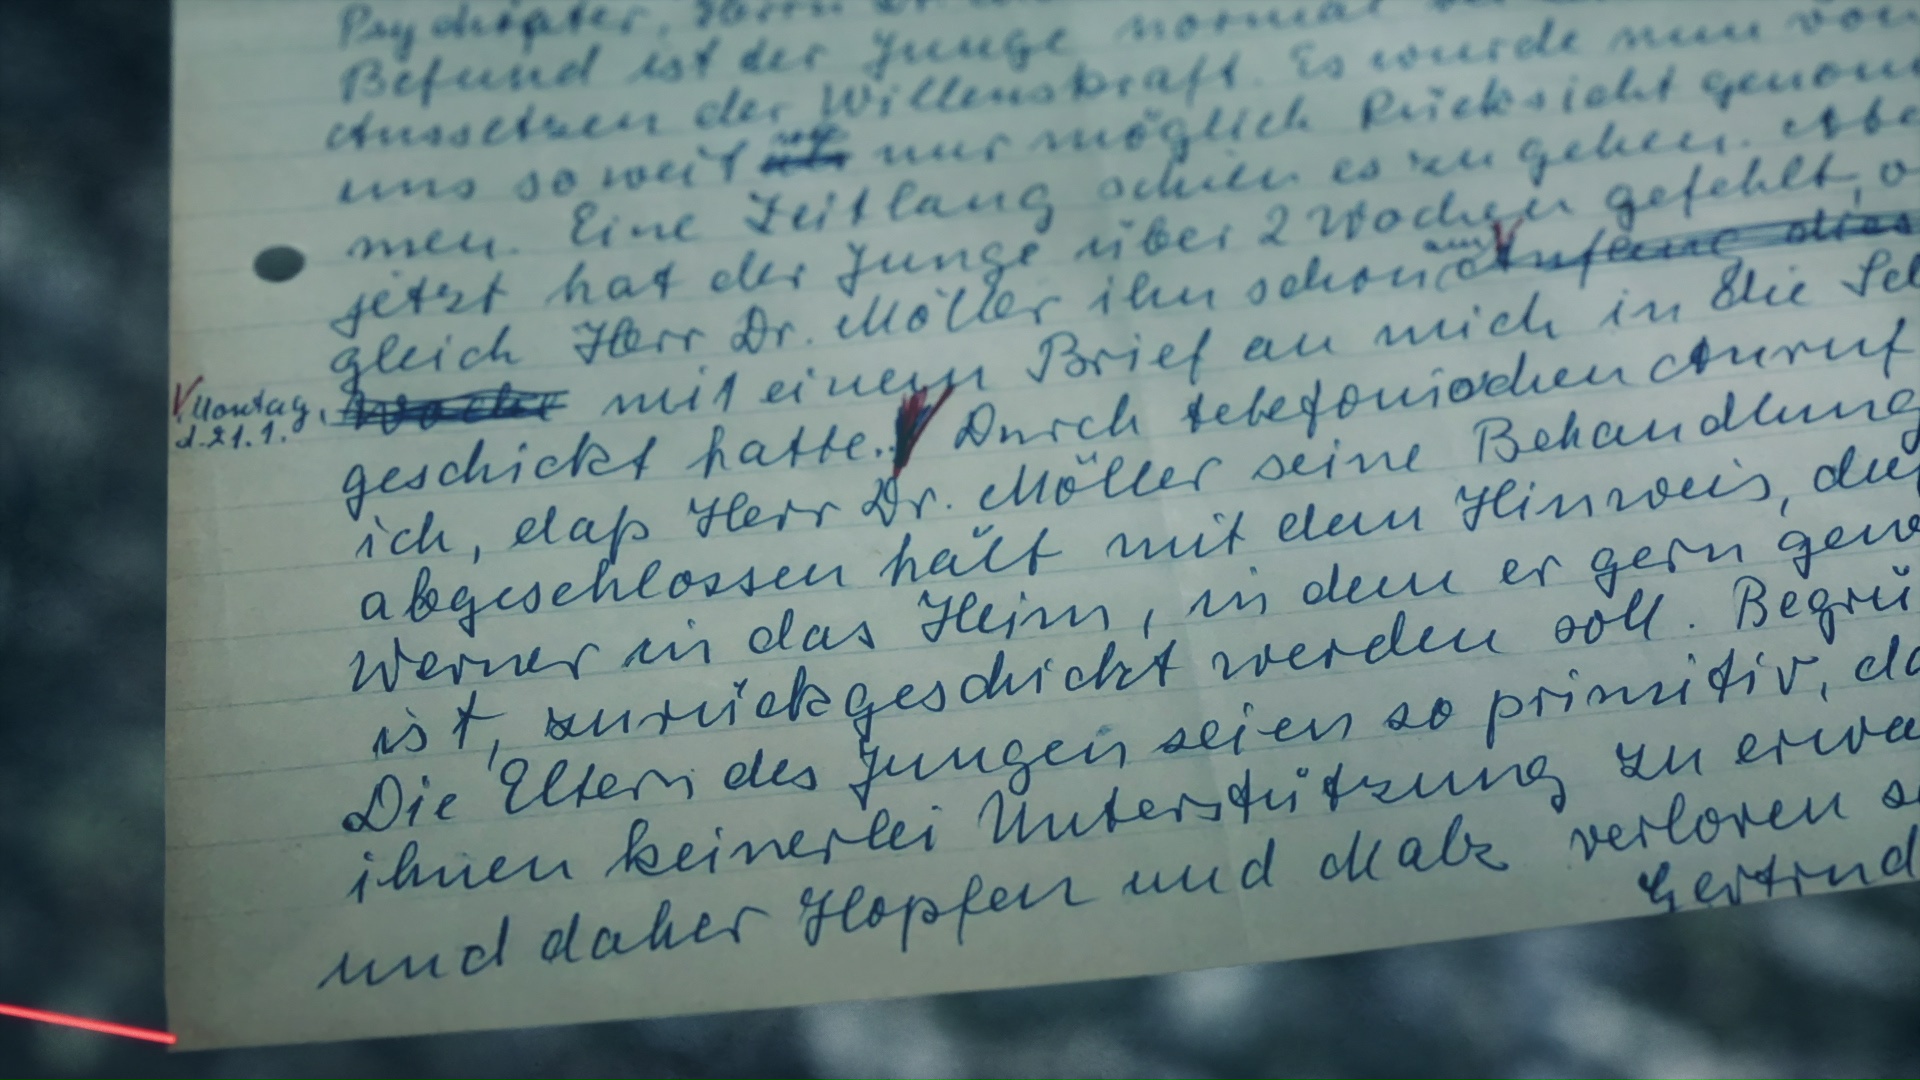 Psychiater, Herrn Dr.
Befund ist der Junge normal
Aussetzen der Willenskraft. Es wurde nun von
uns soweit nur möglich Rücksicht genom
men. Eine Zeitlang schien es zu gehen. Abe
jetzt hat der Junge über 2 Wochen gefehlt, o
gleich Herr Dr. Möller ihn schon am Anfang dies
Montag, d. 21.1. Woche mit einem Brief an mich in die Sch
geschickt hatte. Durch telefonischen Anruf
ich, daß Herr Dr. Möller seine Behandlung
abgeschlossen hält mit dem Hinweis, daß
Werner in das Heim, in dem er gern gew
ist, zurückgeschickt werden soll. Begrü
Die Eltern des Jungen seien so primitiv, da
ihnen keinerlei Unterstützung zu erwa
und daher Hopfen und Malz verloren s
Gertrud